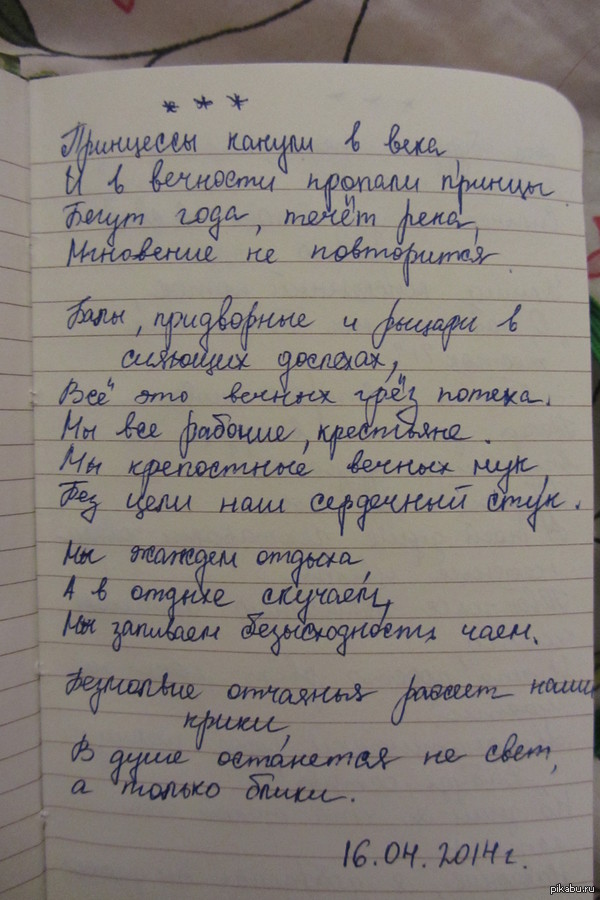 * * *
Принцессы канули в века
И в вечности пропали принцы
Бегут года, течёт река,
Мгновение не повторится
Балы, придворные и рыцари в
сияющих доспехах,
Всё это вечных грёз потеха.
Мы все рабочие, крестьяне.
Мы крепостные вечных мук,
Без цели наш сердечный стук.
Мы жаждем отдыха,
А в отдыхе скучаем,
Мы запиваем безысходность чаем.
Безмолвие отчаянья наши
крики,
В душе останется не свет,
а только блики.
16.04.2014г.
pikabu.ru